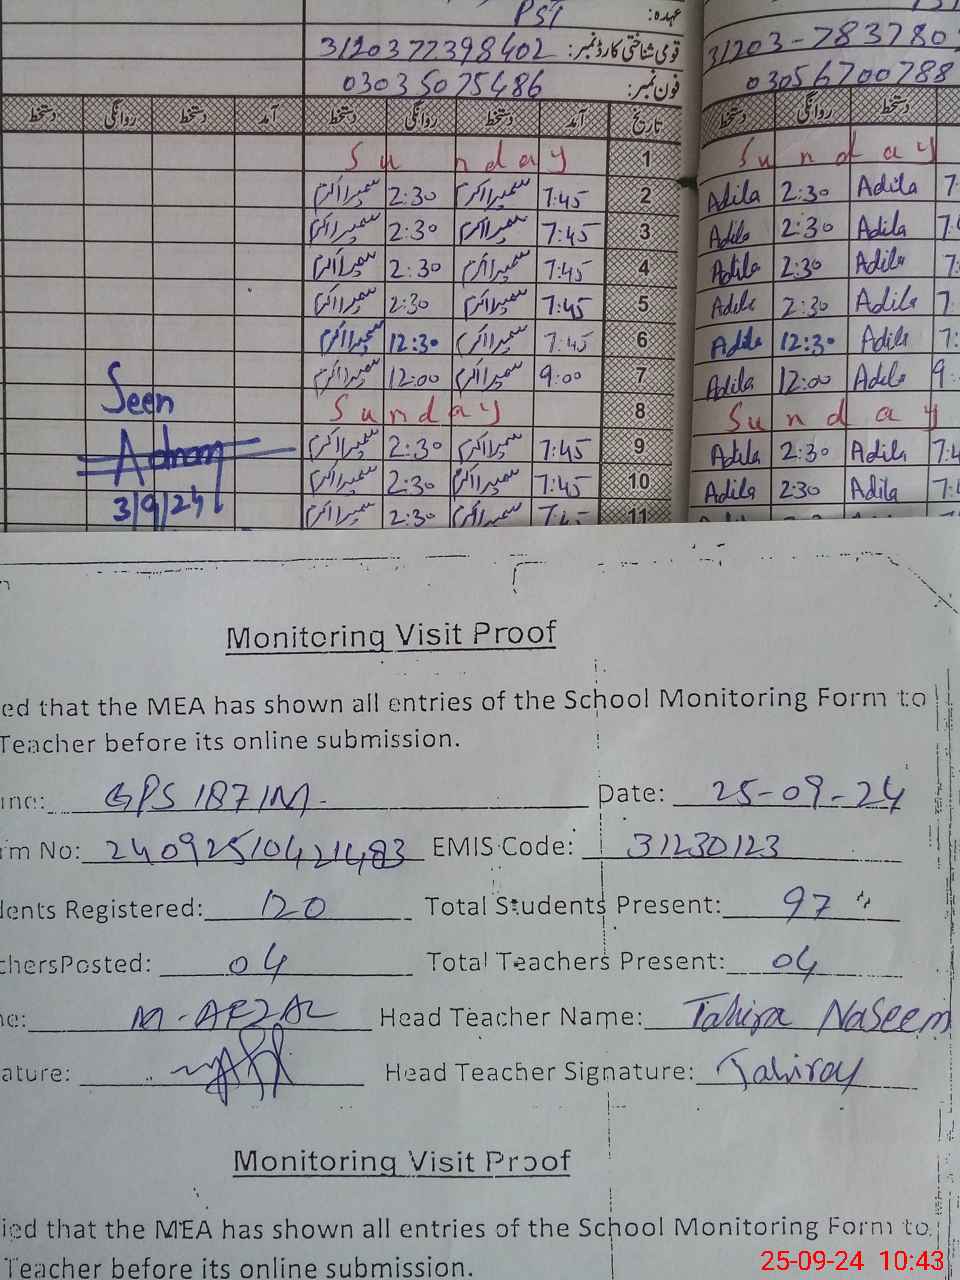 عہدہ: PST
قومی شناختی کارڈ نمبر: 3120372398402 31203-783780
فون نمبر: 03035075486 03056700788
تاریخ آمد دستخط روانگی دستخط آمد دستخط روانگی دستخط
1 Sunday Sunday
2 7:45 سمیرا اکرم 2:30 سمیرا اکرم Adila 2:30 Adila 7:
3 7:45 سمیرا اکرم 2:30 سمیرا اکرم Adila 2:30 Adila 7:4
4 7:45 سمیرا اکرم 2:30 سمیرا اکرم Adila 2:30 Adila 7:
5 7:45 سمیرا اکرم 2:30 سمیرا اکرم Adila 2:30 Adila 7
6 7:45 سمیرا اکرم 12:30 سمیرا اکرم Adila 12:30 Adila 7:
7 9:00 سمیرا اکرم 12:00 سمیرا اکرم Adila 12:00 Adila 9
8 Sunday Sunday
9 7:45 سمیرا اکرم 2:30 سمیرا اکرم Adila 2:30 Adila 7:4
10 7:45 سمیرا اکرم 2:30 سمیرا اکرم Adila 2:30 Adila 7:4
11 سمیرا اکرم 2:30 سمیرا اکرم
Seen
3/9/24
Monitoring Visit Proof
ed that the MEA has shown all entries of the School Monitoring Form to
Teacher before its online submission.
me: GPS 187/M Date: 25-09-24
rm No: 24092510421483 EMIS Code: 31230123
dents Registered: 120 Total Students Present: 97
chersPosted: 04 Total Teachers Present: 04
ne: M-AFZAL Head Teacher Name: Tahira Naseem
ature: Head Teacher Signature: Tahira
Monitoring Visit Proof
ied that the MEA has shown all entries of the School Monitoring Form to
Teacher before its online submission.
25-09-24 10:43